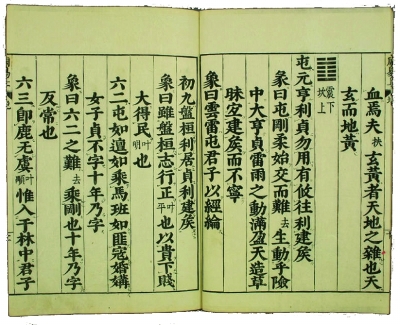 血焉夫 扶 玄黃者天地之雜也天
玄而地黃
震下
坎上
屯元亨利貞勿用有攸往利建侯
彖曰屯剛柔始交而難 去 生動乎險
中大亨貞雷雨之動滿盈天造草
昧宜建侯而不寧
象曰雲雷屯君子以經綸
初九盤桓利居貞利建侯
象曰雖盤桓志行正 叶平 也以貴下賤
大得民 叶 也
六二屯如邅如乘馬班如匪寇婚媾
女子貞不字十年乃字
象曰六二之難 去 乘剛也十年乃字
反常也
六三即鹿无虞 叶 惟入于林中君子